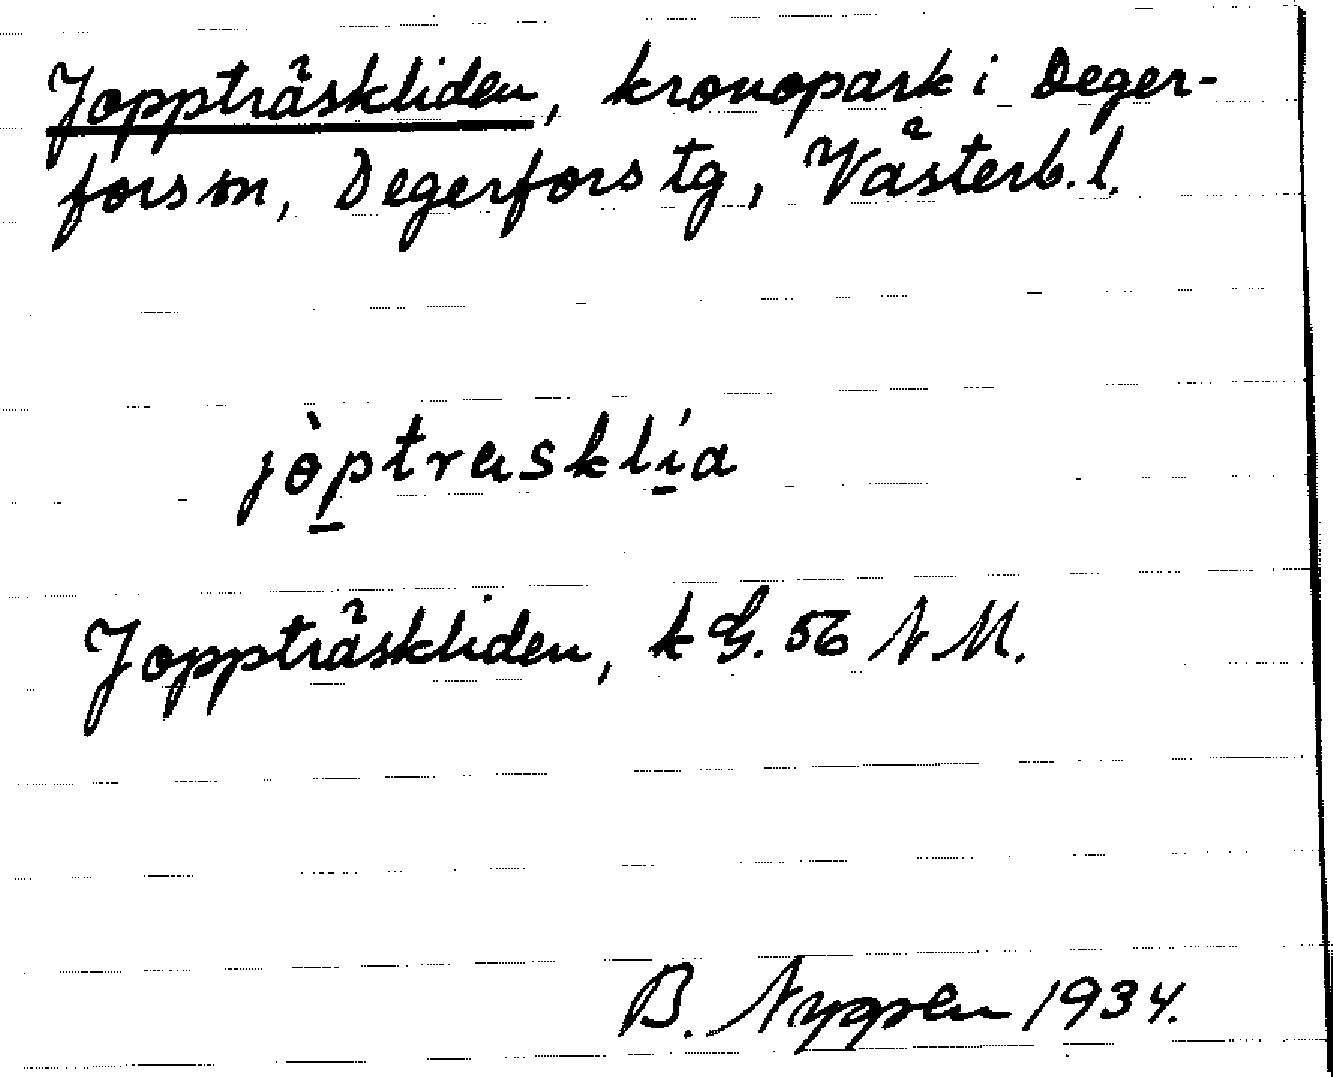 Joppträskliden, kronopark i Deger-
fors sn, Degerfors tg, Västerb. l.
jòptrasklía
Joppträskliden, k G. 56 N. M.
B. Nygren 1934.